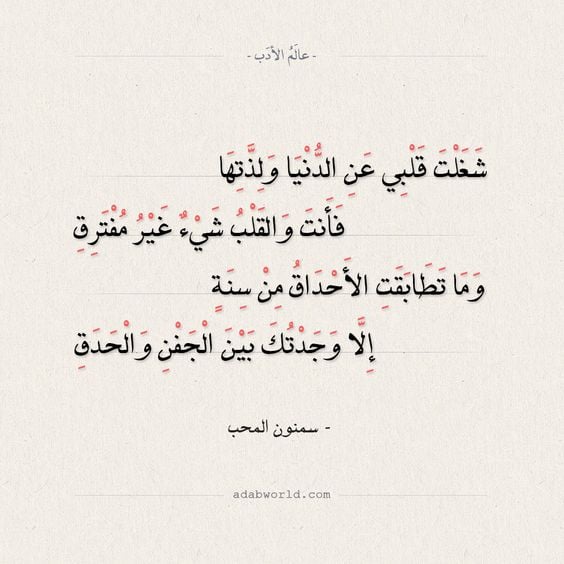 - عالَمُ الأدَب -
شَغَلْتَ قَلْبِي عَنِ الدُّنْيَا وَلِذَّتِهَا
فَأَنتَ وَالقَلْبُ شَيْءٌ غَيْرُ مُفْتَرِقِ
وَمَا تَطَابَقَتِ الأَحْدَاقُ مِنْ سِنَةٍ
إِلَّا وَجَدْتُكَ بَيْنَ الْجَفْنِ وَالْحَدَقِ
- سمنون المحب
adabworld.com